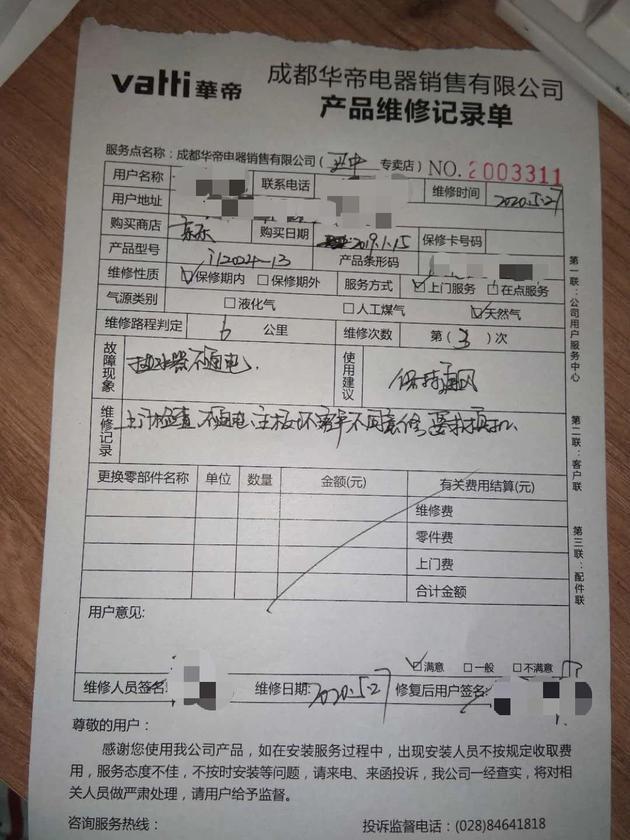 vatti 華帝
成都华帝电器销售有限公司
产品维修记录单
服务点名称：成都华帝电器销售有限公司( 专卖店) NO. 2003311
用户名称 联系电话 维修时间 2020.5.27
用户地址
购买商店 京东 购买日期 2019.1.15 保修卡号码
产品型号 i12024-13 产品条形码
维修性质 ☑保修期内 □保修期外 服务方式 ☑上门服务 □在点服务
气源类别 □液化气 □人工煤气 ☑天然气
维修路程判定 6 公里 维修次数 第(3)次
故障现象 热水器不通电. 使用建议 保持通风
维修记录 上门检查,不通电,主板坏,客户不同意修,要求换机.
更换零部件名称 单位 数量 金额(元) 有关费用结算(元)
维修费
零件费
上门费
合计金额
用户意见:
☑满意 □一般 □不满意
维修人员签名: 维修日期: 2020.5.27 修复后用户签名:
第一联：公司用户服务中心
第二联：客户联
第三联：配件联
尊敬的用户：
感谢您使用我公司产品，如在安装服务过程中，出现安装人员不按规定收取费
用，服务态度不佳，不按时安装等问题，请来电、来函投诉，我公司一经查实，将对
相关人员做严肃处理，请用户给予监督。
咨询服务热线： 投诉监督电话：(028)84641818